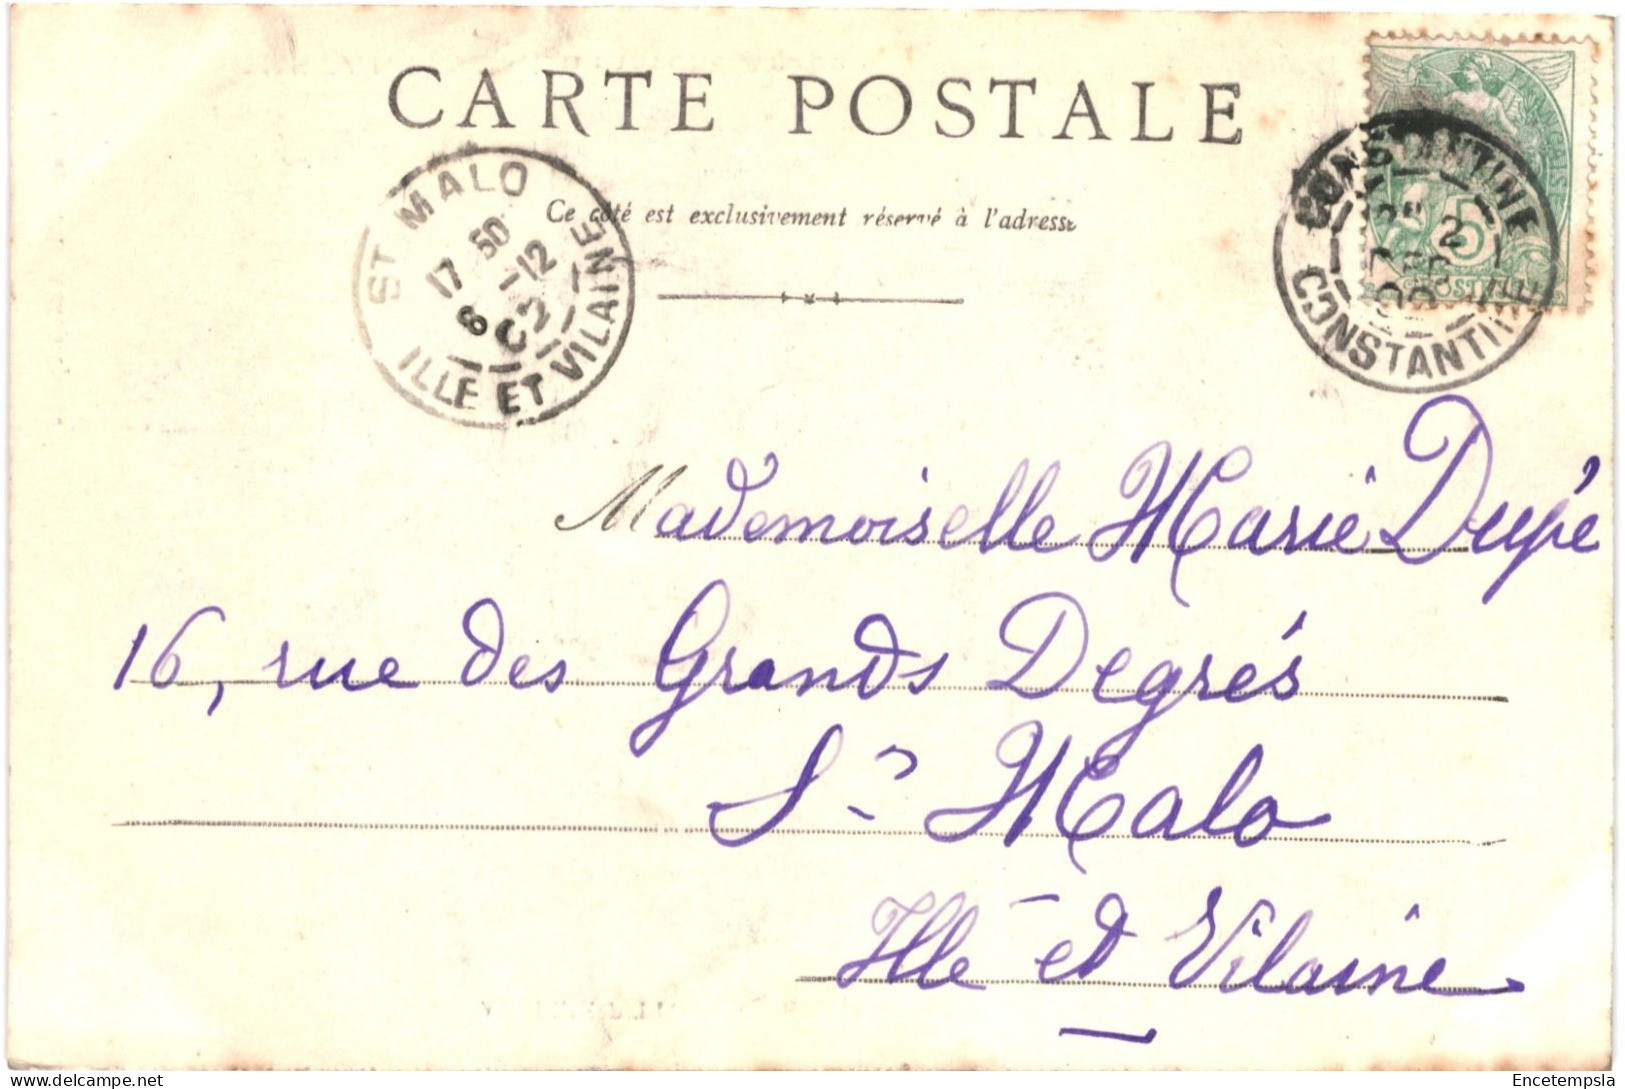 CARTE POSTALE
Ce côté est exclusivement réservé à l'adresse
ST MALO
17 50
6 -12
02
ILLE ET VILAINE
FRANÇAISE
5
POSTES
CONSTANTINE
2
DEC
CONSTANTINE
Mademoiselle Marie Dupé
16, rue des Grands Degrés
St Malo
Ille-et Vilaine
Encetempsla